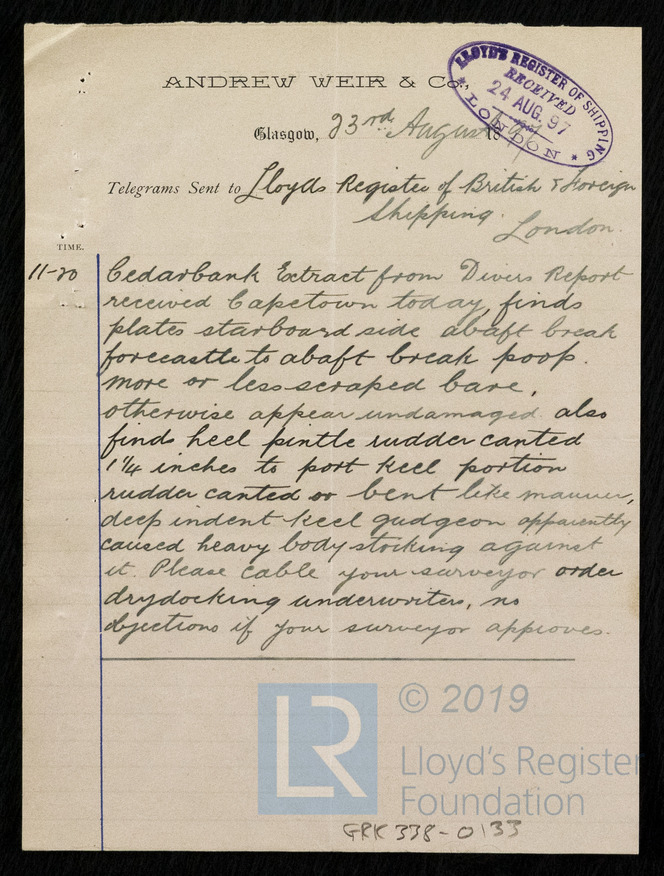 ANDREW WEIR & Co.,
LLOYD'S REGISTER OF SHIPPING
RECEIVED
24 AUG. 97
* LONDON *
Glasgow, 23rd August 1897
Telegrams Sent to Lloyds Register of British & Foreign
Shipping.
London.
TIME.
11-20 Cedarbank Extract from Divers Report
received Capetown today, finds
plates starboard side abaft break
forecastle to abaft break poop.
more or less scraped bare,
otherwise appear undamaged. also
finds heel pintle rudder canted
1¼ inches to port keel portion
rudder canted or bent like manner,
deep indent keel gudgeon apparently
caused heavy body stocking against
it. Please cable your surveyor order
drydocking underwriters, no
objections if your surveyor approves.
LR
© 2019
Lloyd's Register
Foundation
GRK 338-0133